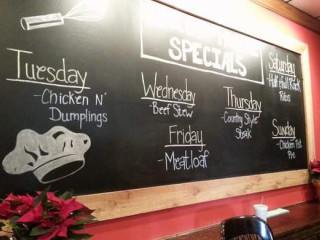 SPECIALS
Tuesday
-Chicken N'
Dumplings
Wednesday
-Beef Stew
Thursday
-Country Style
Steak
Friday
-Meatloaf
Saturday
-Half/Full Rack
Ribs
Sunday
-Chicken Pot
Pie